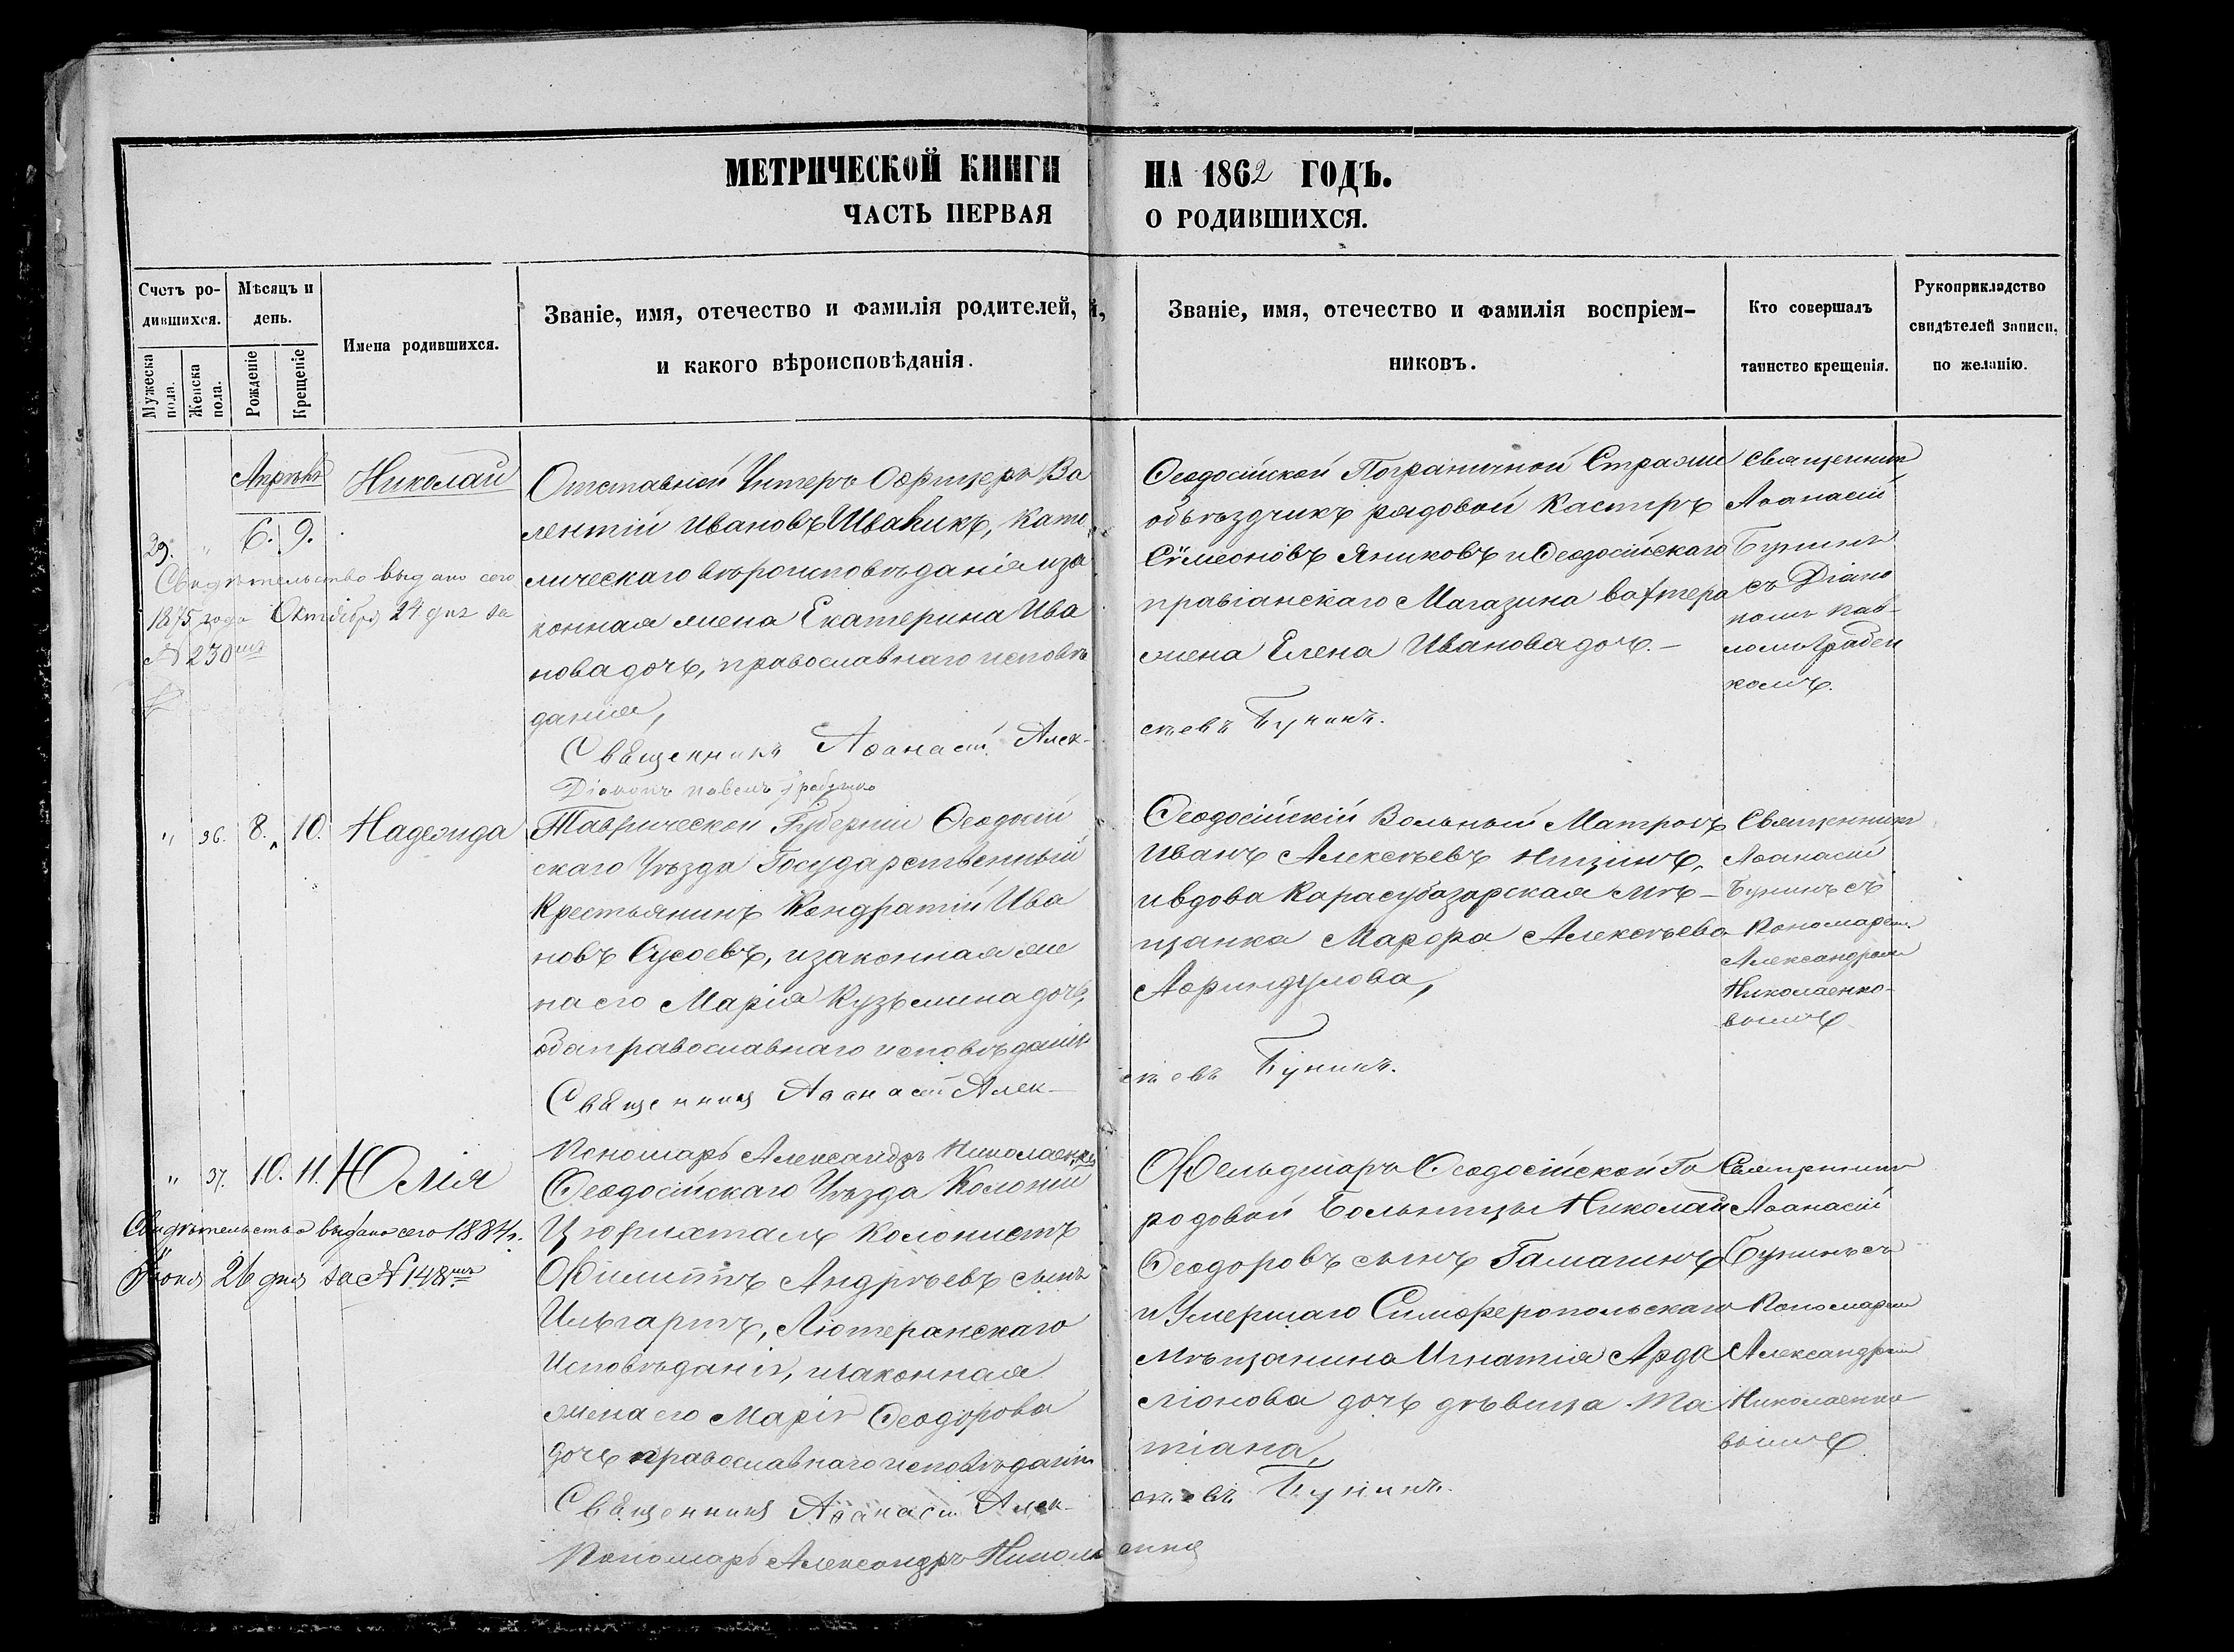 МЕТРИЧЕСКОЙ КНИГИ НА 1862 ГОДЪ.
ЧАСТЬ ПЕРВАЯ О РОДИВШИХСЯ.
Счетъ родившихся.
Мужеска пола.
Женска пола.
Мѣсяцъ и день.
Рожденіе
Крещеніе
Имена родившихся.
Званіе, имя, отечество и фамилія родителей,
и какого вѣроисповѣданія.
Званіе, имя, отечество и фамилія воспріем-
никовъ.
Кто совершалъ
таинство крещенія.
Рукоприкладство
свидѣтелей записи,
по желанію.
Апрѣль
29. " 6. 9.
Николай
Свидѣтельство выдано сего
1875 года Октября 24 дня за
№ 230
Отставной Унтеръ Офицеръ Ва
лентій Ивановъ Ивакикъ, Като
лическаго вѣроисповѣданія и за
конная жена Екатерина Ива
нова дочь, православнаго исповѣ
данія,
Священникъ Аѳанасій Алек-
сѣевъ Бунинъ.
Діаконъ Павелъ Грабенко
Ѳеодосійской Пограничной Стражи
объѣздчикъ рядовой Кастиръ
Сѵмеоновъ Яниковъ и Ѳеодосійскаго
правіанскаго Магазина вахтера
жена Елена Иванова дочь.
Священникъ
Аѳанасій
Бунинъ
съ Діако
номъ Пав-
ломъ Грабен
комъ.
" 36. 8. 10. Надежда
Таврической Губерніи Ѳеодосій
скаго Уѣзда Государственный
Крестьянинъ Кондратій Ива
новъ Сусоевъ, и законная же
на его Марія Кузьмина дочь,
оба православнаго исповѣданія
Священникъ Аѳанасій Алек-
сѣевъ Бунинъ.
Пономарь Александръ Николаенко
Ѳеодосійскій Вольный Матросъ
Иванъ Алексѣевъ Ницинъ,
и вдова Карасубазарская мѣ-
щанка Марѳра Алексѣева
Аѳриндулова,
Священникъ
Аѳанасій
Бунинъ съ
Пономарем
Александром
Николаенко-
вымъ
" 37. 10. 11. Юлія
Свидѣтельство выдано сего 1884 г.
Іюня 26 дня за № 148
Ѳеодосійскаго Уѣзда Колоніи
Цюрихталь колонистъ
Филиппъ Андрѣевъ сынъ
Ильгартъ, Лютеранскаго
Исповѣданія, и законная
жена его Марія Ѳеодорова
дочь православнаго исповѣданія
Священникъ Аѳанасій Алек-
сѣевъ Бунинъ.
Пономарь Александръ Николаенко
Фельдшаръ Ѳеодосійской Го
родовой Больницы Николай
Ѳеодоровъ сынъ Гамагинъ
и Умершаго Симферопольскаго
мѣщанина Игнатія Арда
ліонова дочь дѣвица Та
тіана,
Священникъ
Аѳанасій
Бунинъ съ
Пономарем
Александром
Николаенко
вымъ